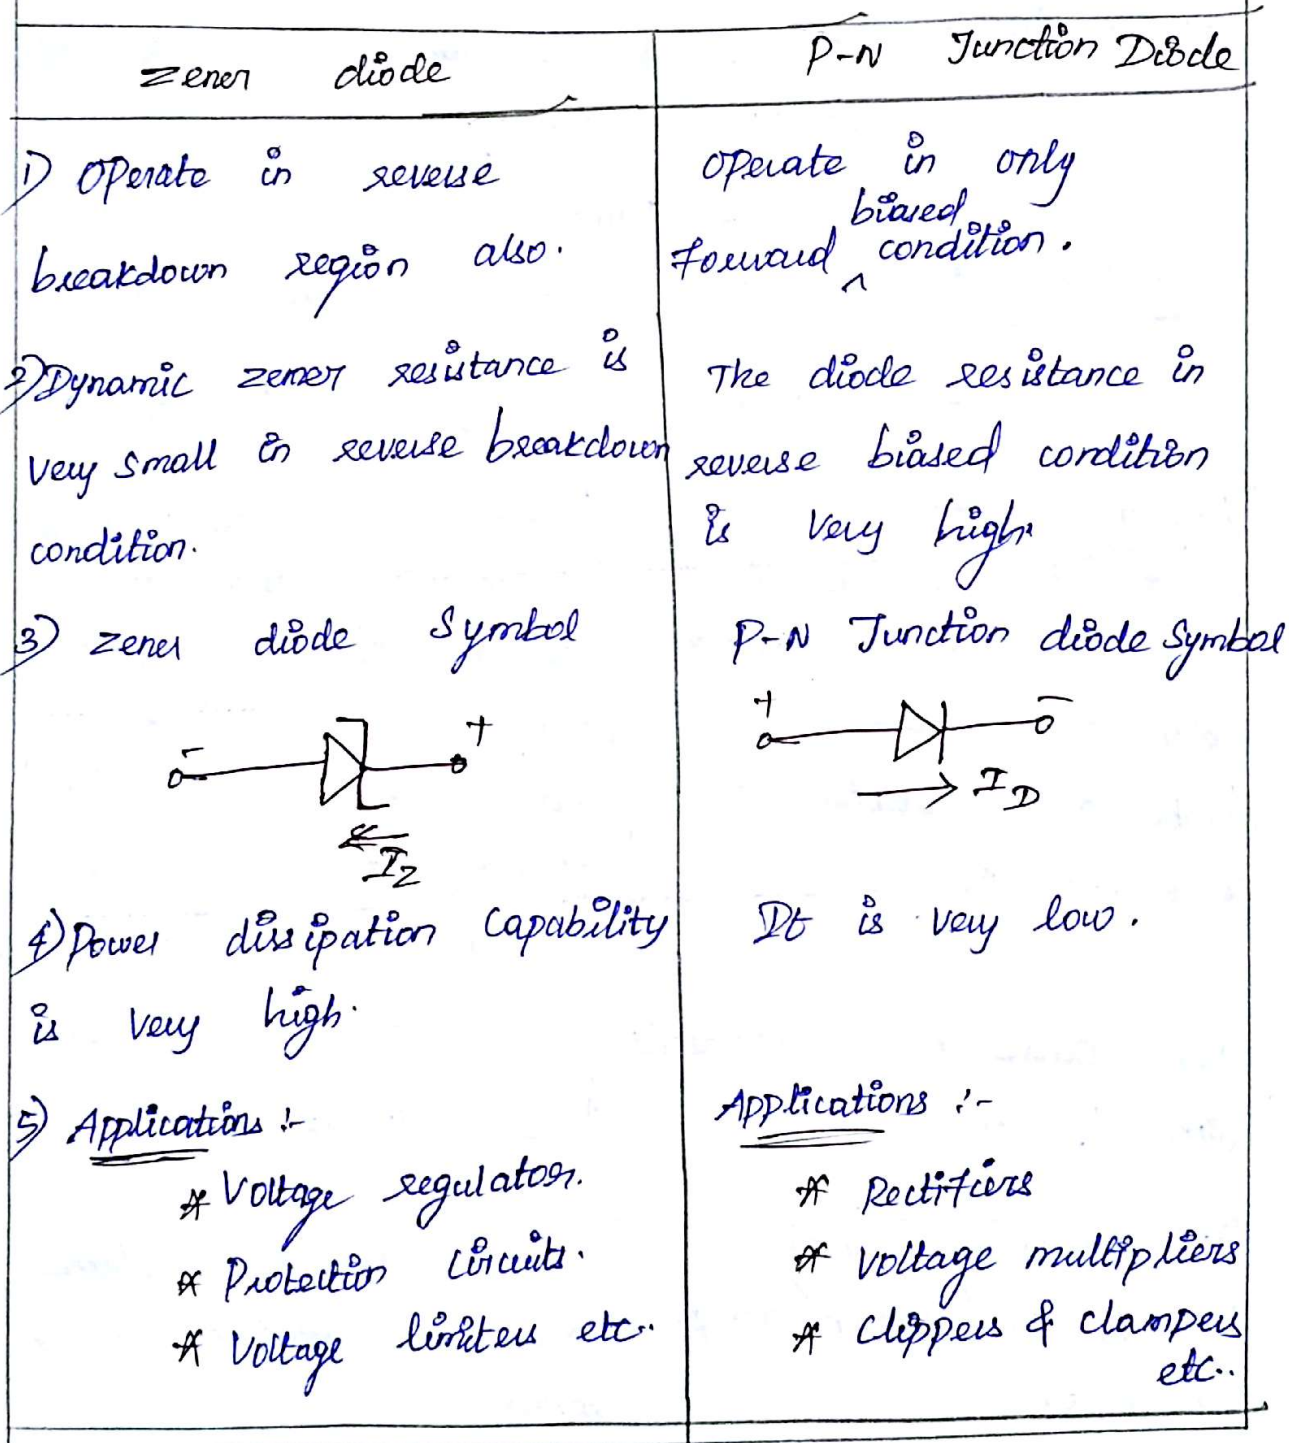 Zener diode
P-N Junction Diode
1) Operate in reverse
breakdown region also.
Operate in only
biased
forward ^ condition.
2) Dynamic zener resistance is
very small in reverse breakdown
condition.
The diode resistance in
reverse biased condition
is very high.
3) Zener diode Symbol
- +
IZ
P-N Junction diode Symbol
+ -
ID
4) Power dissipation capability
is very high.
It is very low.
5) Applications :-
* Voltage regulator.
* Protection circuits.
* Voltage limiters etc..
Applications :-
* Rectifiers
* Voltage multipliers
* Clippers & clampers
etc..